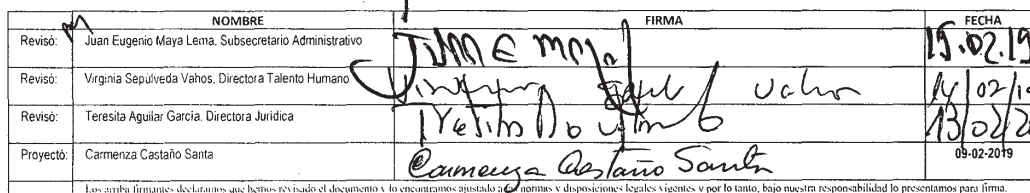 NOMBRE FIRMA FECHA
Revisó: Juan Eugenio Maya Lema. Subsecretario Administrativo 15.02.19
Revisó: Virginia Sepúlveda Vahos, Directora Talento Humano 14/02/19
Revisó: Teresita Aguilar García. Directora Jurídica 13/02/
Proyectó: Carmenza Castaño Santa Carmenza Castaño Santa 09-02-2019
Los arriba firmantes declaramos que hemos revisado el documento y lo encontramos ajustado a normas y disposiciones legales vigentes y por lo tanto, bajo nuestra responsabilidad lo presentamos para firma.